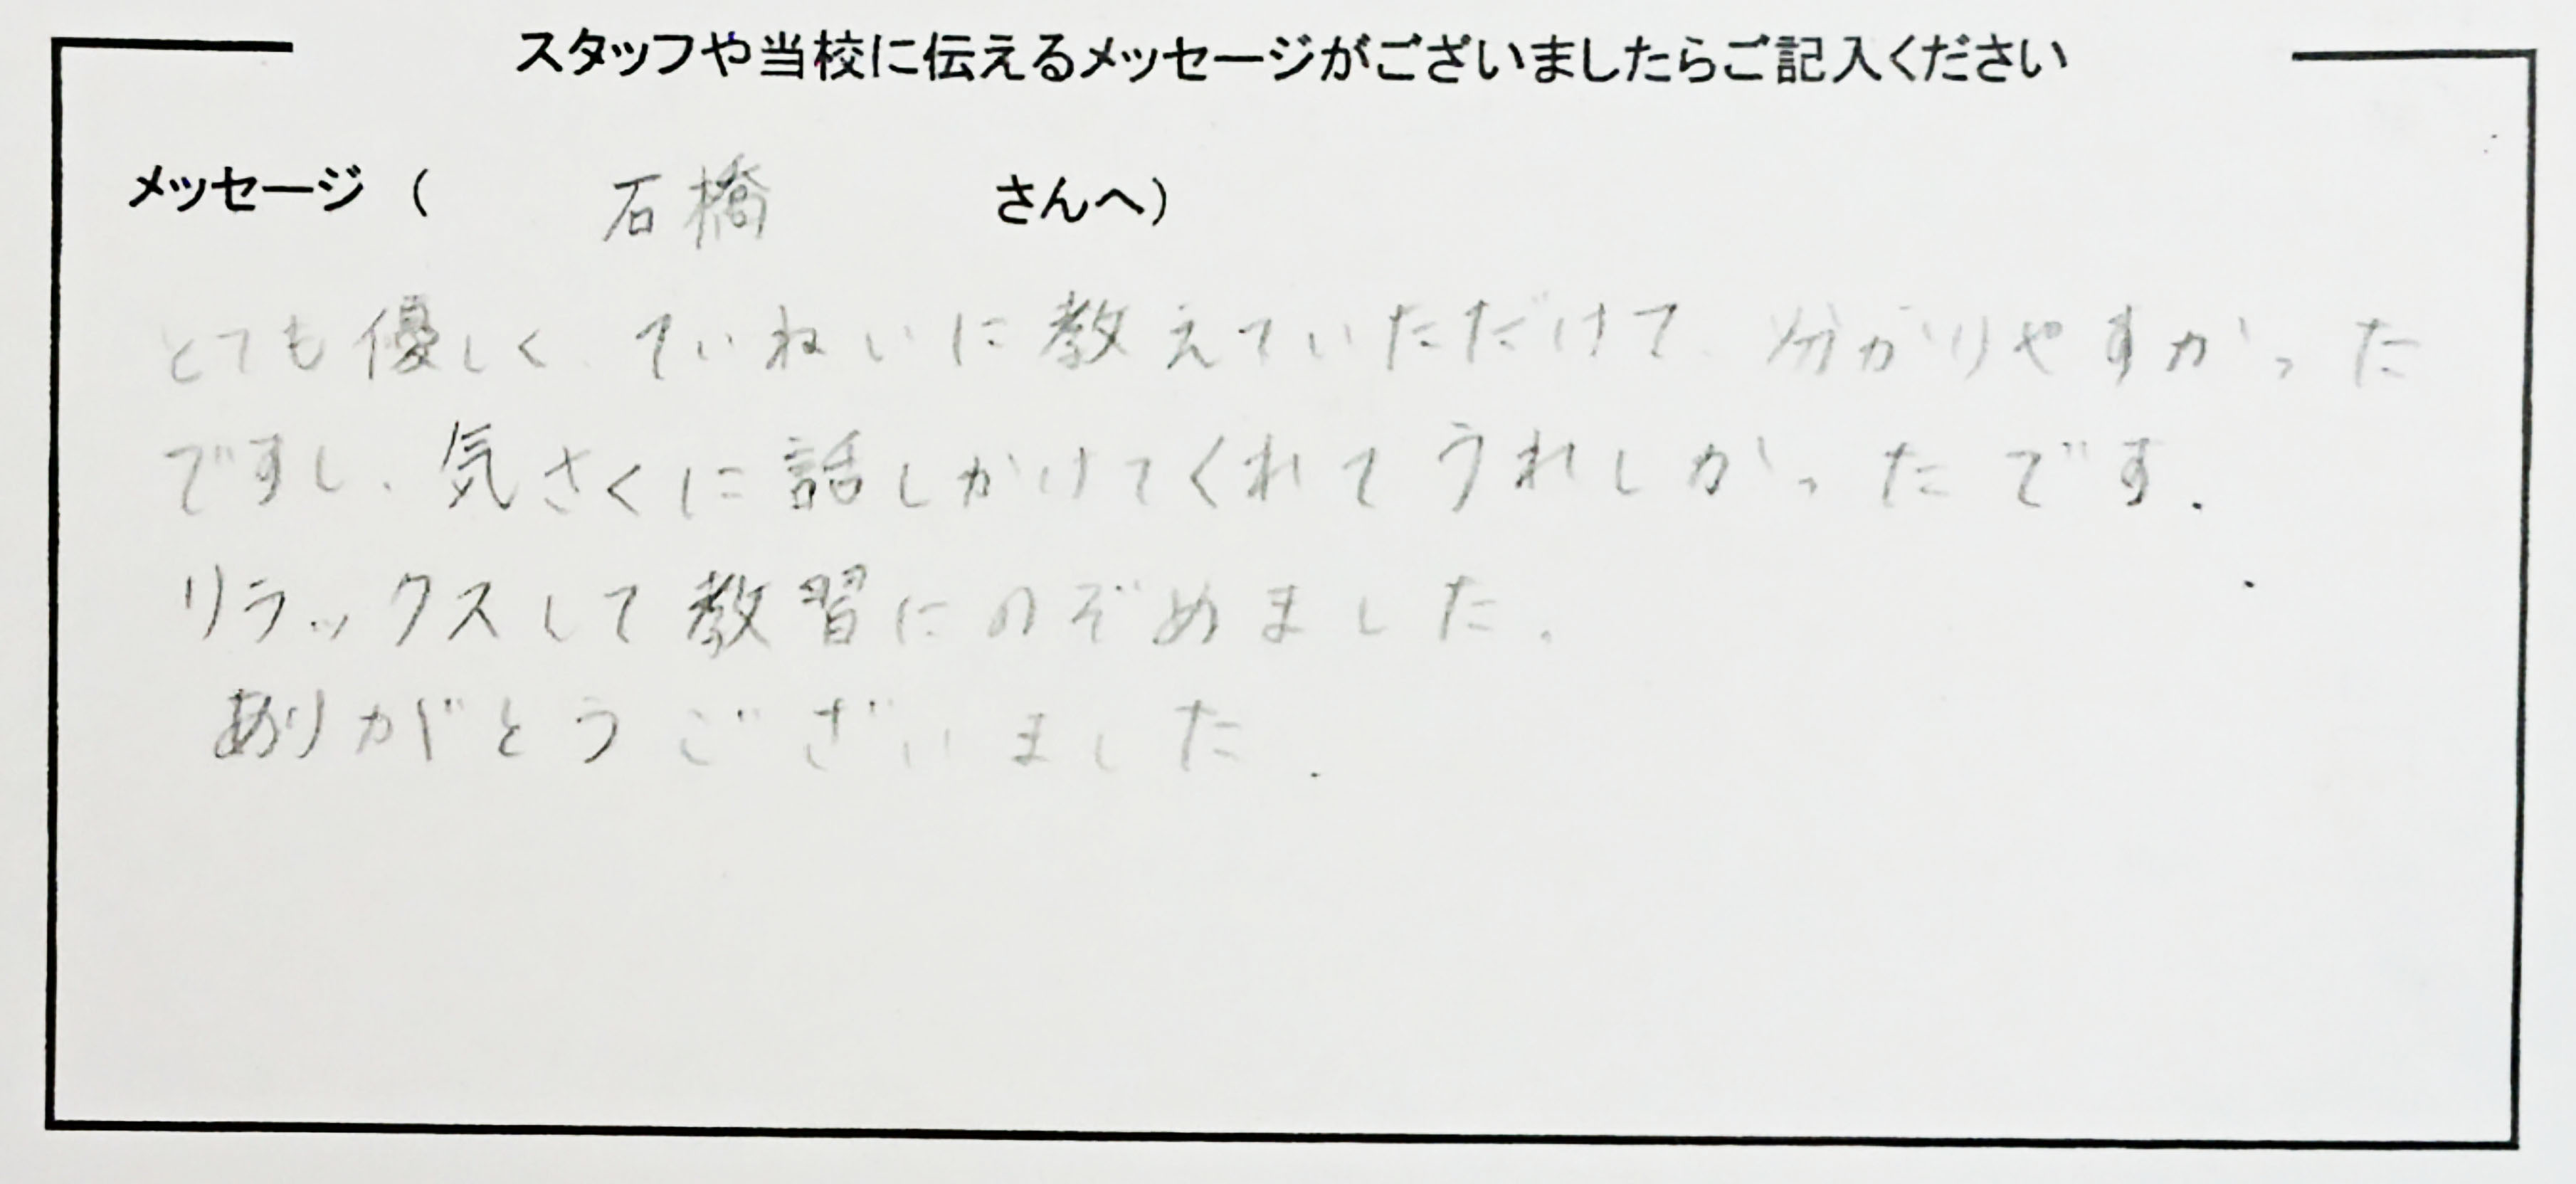 スタッフや当校に伝えるメッセージがございましたらご記入ください
メッセージ ( 石橋 さんへ)
とても優しく、ていねいに教えていただけて、分かりやすかった
ですし、気さくに話しかけてくれてうれしかったです.
リラックスして教習にのぞめました.
ありがとうございました.